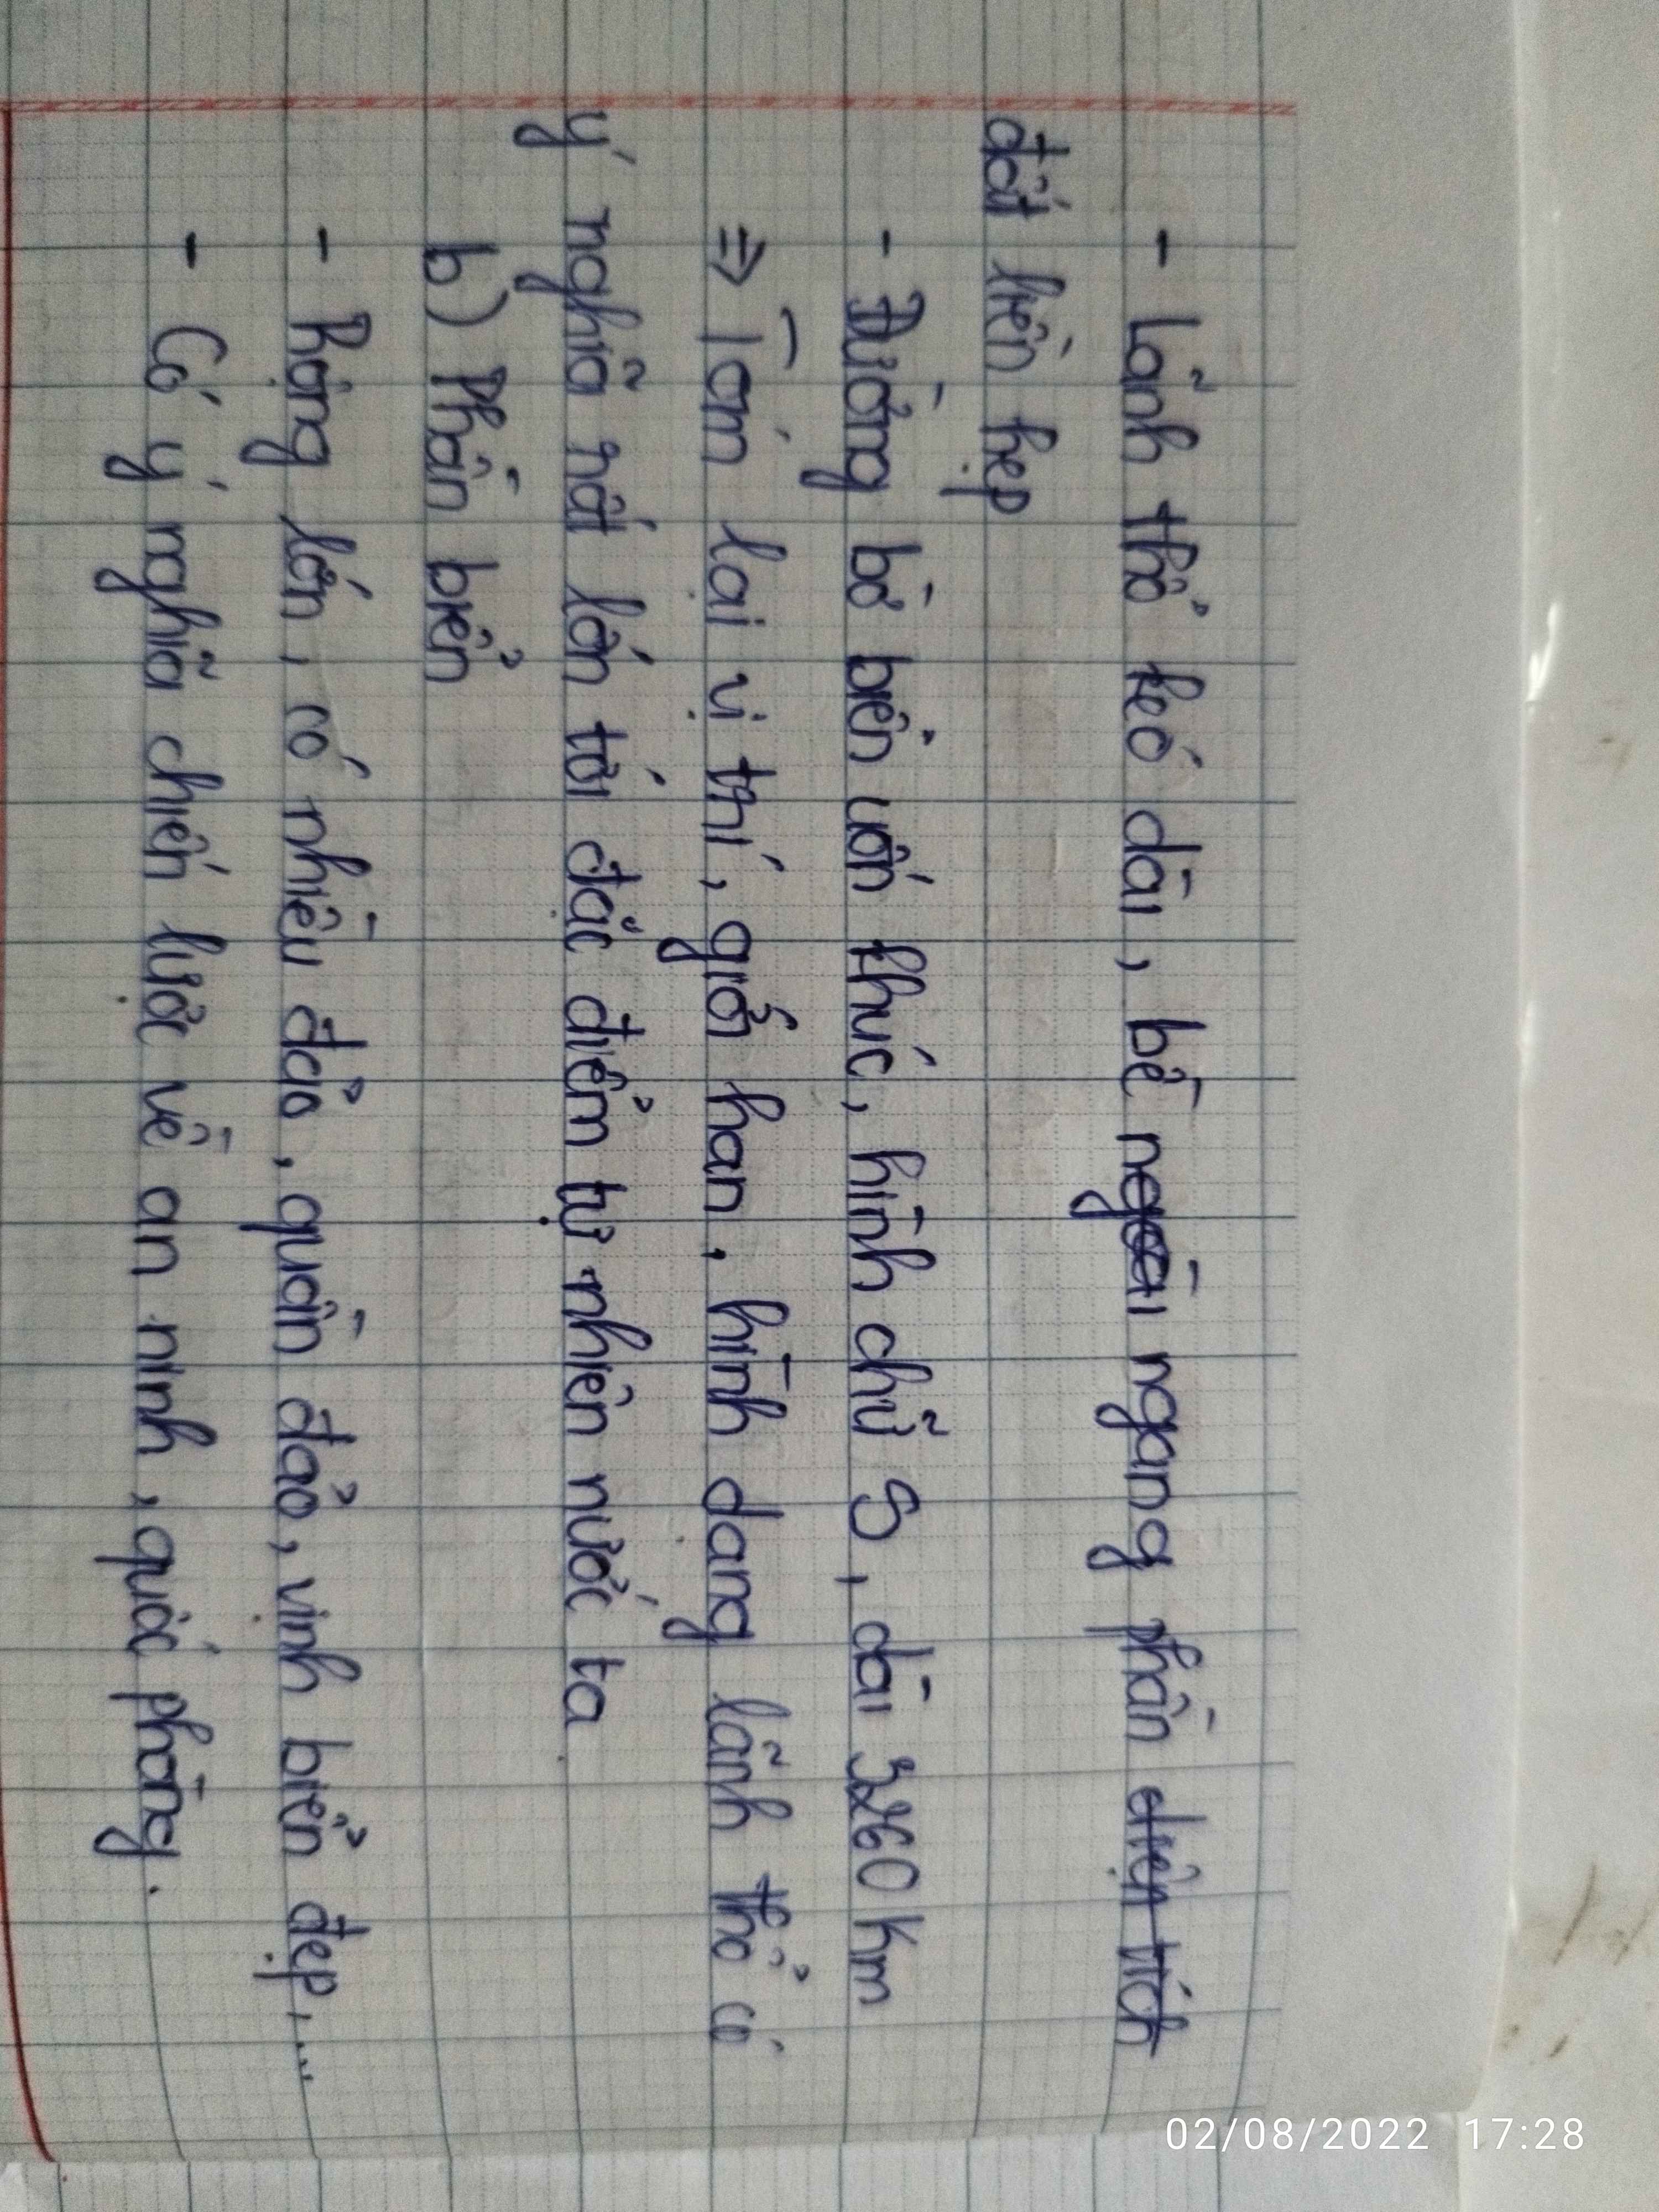 - Lãnh thổ kéo dài, bề ngang phần
đất liền hẹp
- Đường bờ biển uốn khúc, hình chữ S, dài 3260 km
=> Tóm lại vị thí, giới han, hình dang lãnh thổ có
ý nghĩa rất lớn tới đặc điểm tự nhiên nước ta
b) Phần biển
- Rộng lớn, có nhiều đảo, quần đảo, vịnh biển đẹp,...
- Có ý nghĩa chiến lược về an ninh, quốc phòng.
02/08/2022 17:28